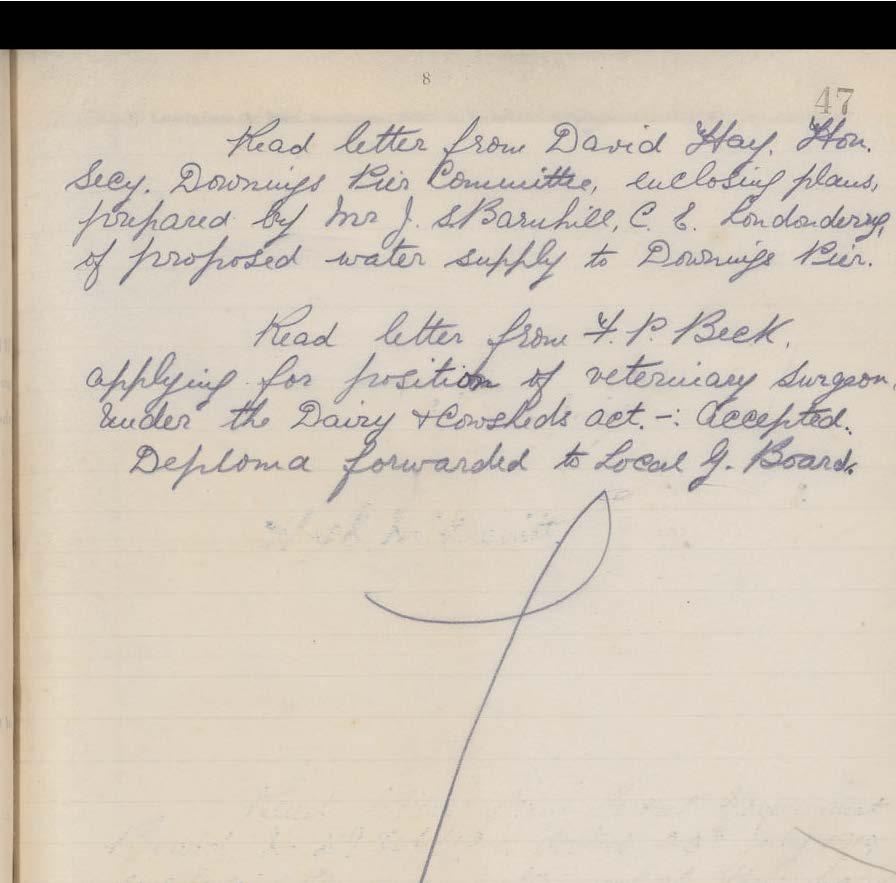 8
47
Read letter from David Hay, Hon.
Secy. Downings Pier Committee, enclosing plans,
prepared by Mr J. S. Barnhill, C. E. Londonderry,
of proposed water supply to Downings Pier.
Read letter from F. P. Beck,
applying for position of veterinary Surgeon,
under the Dairy & Cowsheds act. -: Accepted.
Deploma forwarded to Local G. Board.